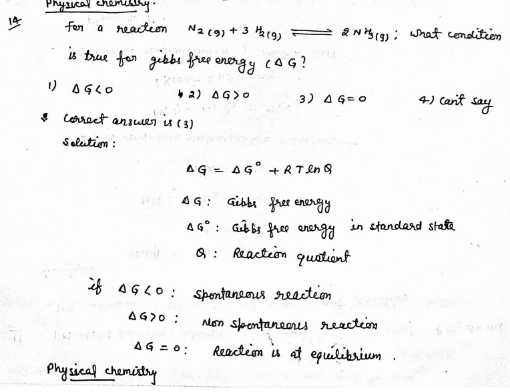 Physical chemistry.
14 For a reaction N2(g) + 3 H2(g) ⇌ 2 NH3(g); what condition
is true for gibbs free energy (ΔG?
1) ΔG<0 2) ΔG>0 3) ΔG=0 4) can't say
correct answer is (3)
Solution:
ΔG = ΔG° + RTlnQ
ΔG: Gibbs free energy
ΔG°: Gibbs free energy in standard state
Q: Reaction quotient
if ΔG<0: spontaneous reaction
ΔG>0: Non spontaneous reaction
ΔG=0: Reaction is at equilibrium.
Physical chemistry